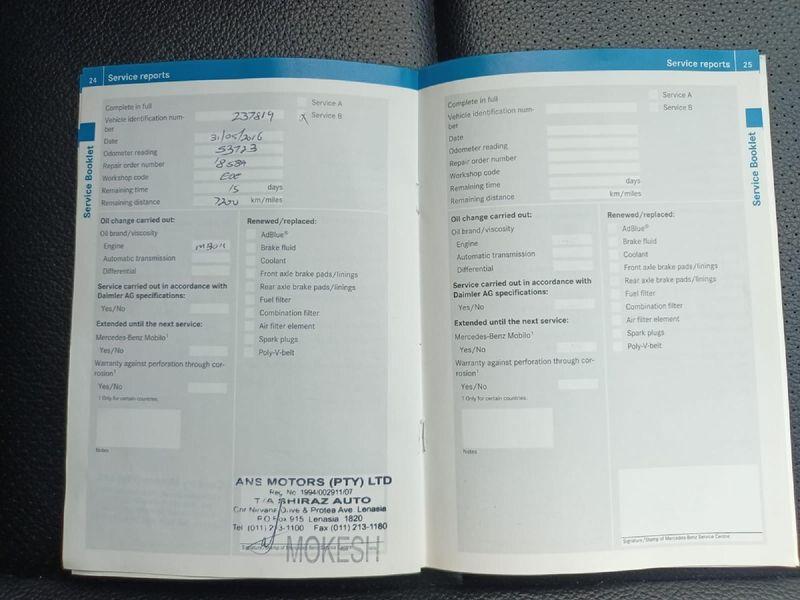 24 Service reports
Service Booklet
Complete in full
Service A
Vehicle identification num-
ber
237819
x Service B
Date
31/05/2016
Odometer reading
53723
Repair order number
Workshop code
Remaining time
15
days
Remaining distance
7200
km/miles
Oil change carried out:
Oil brand/viscosity
Engine
Automatic transmission
Differential
Service carried out in accordance with
Daimler AG specifications:
Yes/No
Extended until the next service:
Mercedes-Benz Mobilo¹
Yes/No
Warranty against perforation through cor-
rosion¹
Yes/No
1 Only for certain countries.
Notes
Renewed/replaced:
AdBlue®
Brake fluid
Coolant
Front axle brake pads/linings
Rear axle brake pads/linings
Fuel filter
Combination filter
Air filter element
Spark plugs
Poly-V-belt
ANS MOTORS (PTY) LTD
Reg. No. 1994/002911/07
T/A SHIRAZ AUTO
Cnr Nirvana Drive & Protea Ave. Lenasia
P O Box 915 Lenasia 1820
Tel (011) 213-1100 Fax (011) 213-1180
MOKESH
Service reports 25
Service Booklet
Complete in full
Service A
Vehicle identification num-
ber
Service B
Date
Odometer reading
Repair order number
Workshop code
Remaining time
days
Remaining distance
km/miles
Oil change carried out:
Oil brand/viscosity
Engine
Automatic transmission
Differential
Service carried out in accordance with
Daimler AG specifications:
Yes/No
Extended until the next service:
Mercedes-Benz Mobilo¹
Yes/No
Warranty against perforation through cor-
rosion¹
Yes/No
1 Only for certain countries.
Notes
Renewed/replaced:
AdBlue®
Brake fluid
Coolant
Front axle brake pads/linings
Rear axle brake pads/linings
Fuel filter
Combination filter
Air filter element
Spark plugs
Poly-V-belt
Signature/Stamp of Mercedes-Benz Service Centre